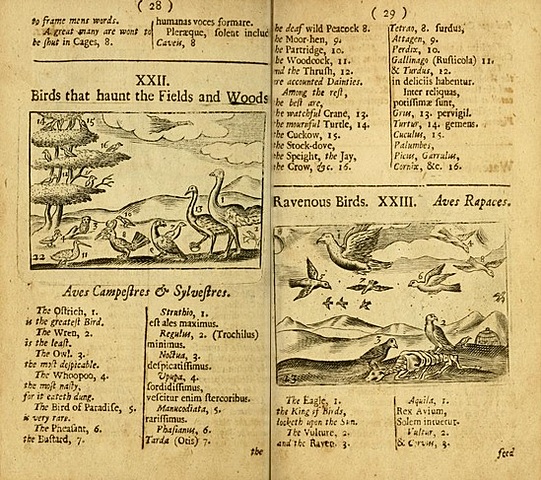 ( 28 )
to frame mens words.
A great many are wont to
be shut in Cages, 8
humanas voces formare.
Pleræque, solent includ
Caveis, 8
XXII.
Birds that haunt the Fields and Woods
14
15
16
22
11
Aves Campestres & Sylvestres.
The Ostrich, 1.
is the greatest Bird.
The Wren, 2.
is the least.
The Owl, 3.
the most despicable.
The Whoopoo, 4.
the most nasty,
for it eateth dung.
The Bird of Paradise, 5.
is very rare.
The Pheasant, 6.
the Bustard, 7.
Struthio, 1.
est ales maximus.
Regulus, 2. (Trochilus)
minimus.
Noctua, 3.
despicatissimus.
Upupa, 4.
sordidissimus,
vescitur enim stercoribus.
Manucodiata, 5.
rarissimus.
Phasianus, 6.
Tarda (Otis) 7.
the
( 29 )
he deaf wild Peacock 8.
he Moor-hen, 9.
he Partridge, 10.
he Woodcock, 11.
nd the Thrush, 12.
re accounted Dainties.
Among the rest,
he best are,
he watchful Crane, 13.
he mournful Turtle, 14.
he Cuckow, 15.
he Stock-dove,
he Speight, the Jay,
he Crow, &c. 16.
Tetrao, 8. surdus,
Attagen, 9.
Perdix, 10.
Gallinago (Rusticola) 11.
& Turdus, 12.
in deliciis habentur.
Inter reliquas,
potissimæ sunt,
Grus, 13. pervigil.
Turtur, 14. gemens.
Cuculus, 15.
Palumbes,
Picus, Garrulus,
Cornix, &c. 16.
Ravenous Birds. XXIII. Aves Rapaces.
23
The Eagle, 1.
the King of Birds,
looketh upon the Sun.
The Vulture, 2.
and the Raven, 3.
Aquila, 1.
Rex Avium,
Solem intuetur.
Vultur, 2.
& Corvus, 3.
feed